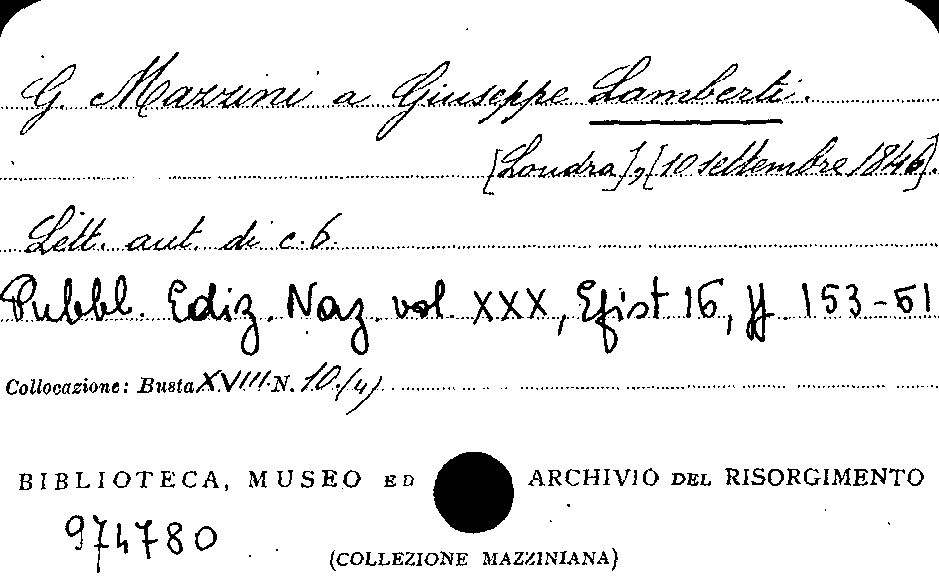 G. Mazzini a Giuseppe Lamberti.
[Londra], [10 settembre 1846].
Lett. aut. di c. 6.
Pubbl. Ediz. Naz. vol. XXX, Epist 16, pp. 153-61
Collocazione: Busta XVIII N. 10/(4)
BIBLIOTECA, MUSEO ED ARCHIVIO DEL RISORGIMENTO
974780
(COLLEZIONE MAZZINIANA)